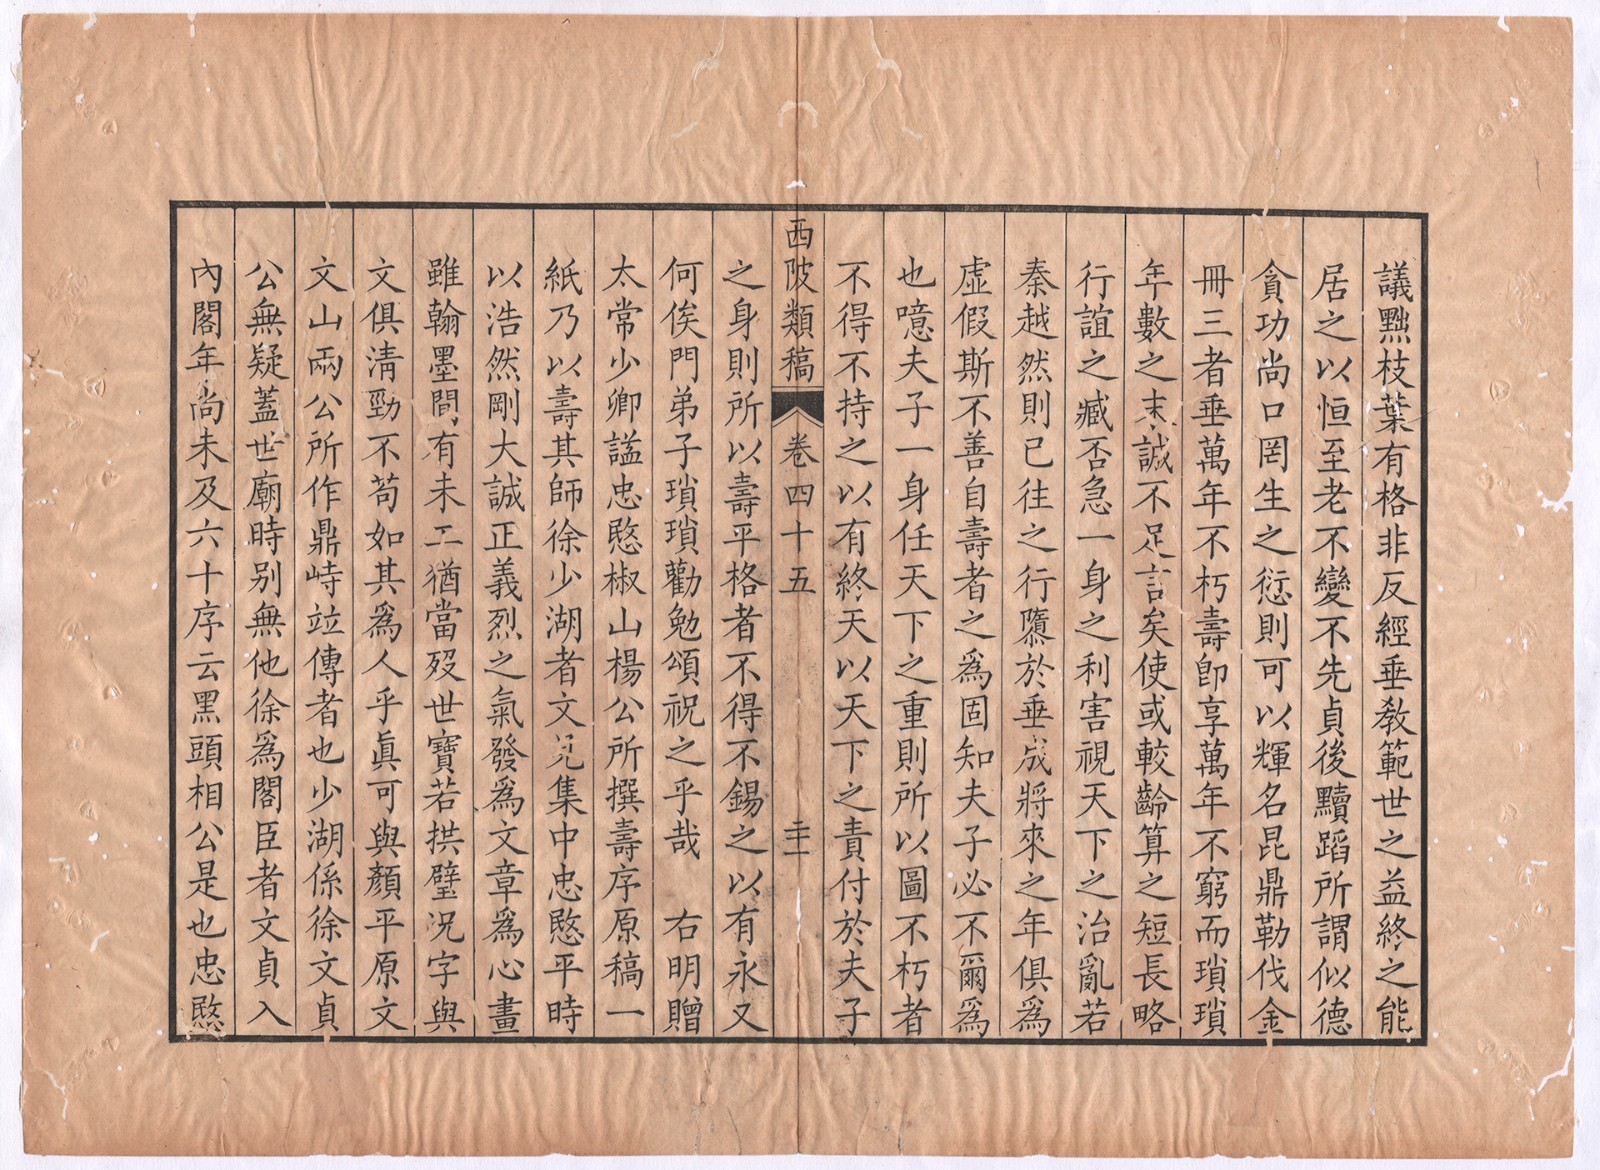 議黜枝葉有格非反經垂敎範世之益終之能
居之以恒至老不變不先貞後黷蹈所謂似德
貪功尚口罔生之愆則可以輝名昆鼎勒伐金
冊三者垂萬年不朽壽卽享萬年不窮而瑣瑣
年數之末誠不足言矣使或較齡算之短長略
行誼之臧否急一身之利害視天下之治亂若
秦越然則已往之行隳於垂成將來之年俱爲
虛假斯不善自壽者之爲固知夫子必不爾爲
也噫夫子一身任天下之重則所以圖不朽者
不得不持之以有終天以天下之責付於夫子
西陂類稿
卷四十五
二十一
之身則所以壽平格者不得不錫之以有永又
何俟門弟子瑣瑣勸勉頌祝之乎哉　右明贈
太常少卿諡忠愍椒山楊公所撰壽序原稿一
紙乃以壽其師徐少湖者文見集中忠愍平時
以浩然剛大誠正義烈之氣發爲文章爲心畫
雖翰墨間有未工猶當歿世寶若拱璧況字與
文俱淸勁不苟如其爲人乎眞可與顏平原文
文山兩公所作鼎峙竝傳者也少湖係徐文貞
公無疑蓋世廟時別無他徐爲閣臣者文貞入
內閣年尚未及六十序云黑頭相公是也忠愍